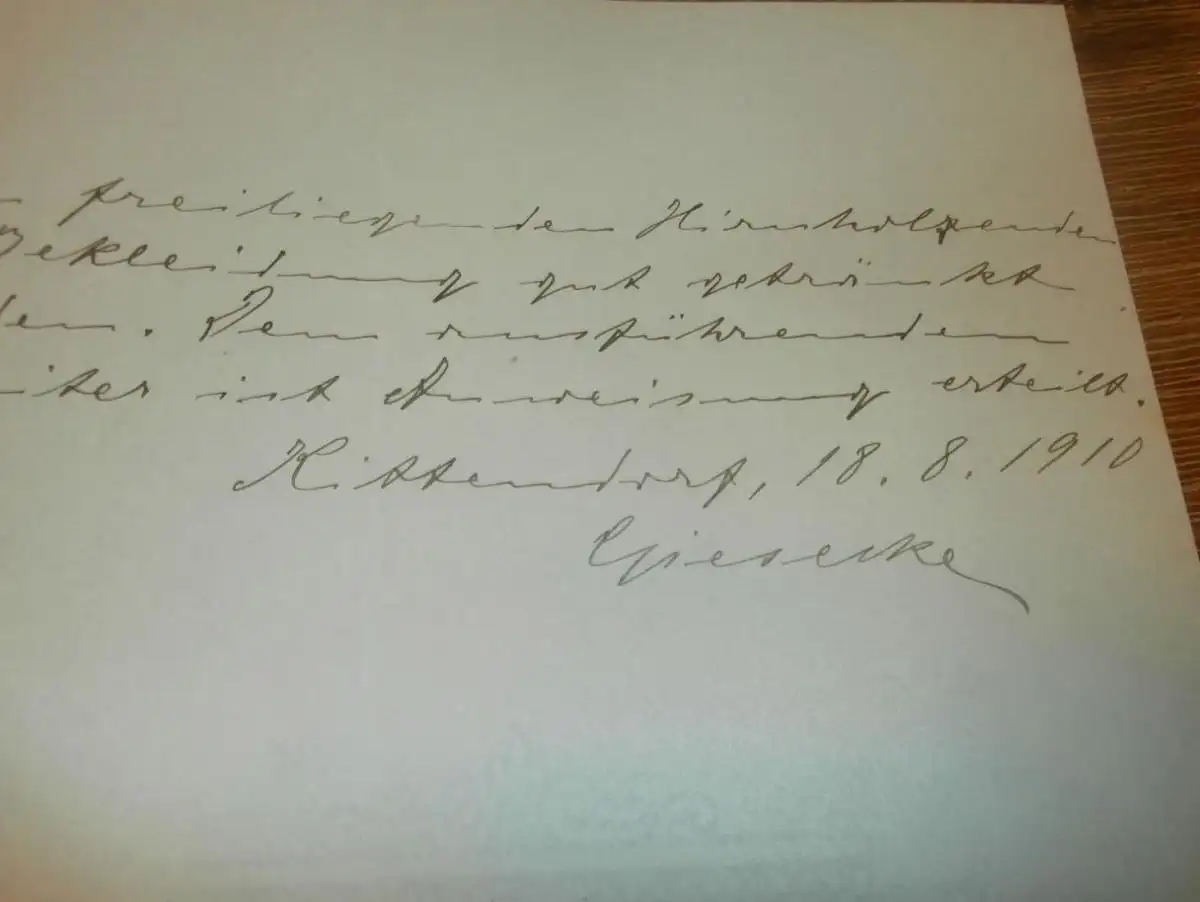 freiliegenden Hirnholzenden
Bekleidung gut getränkt
den. Dem ausführenden
iter ist Anweisung erteilt.
Kittendorf, 18. 8. 1910
Giesecke